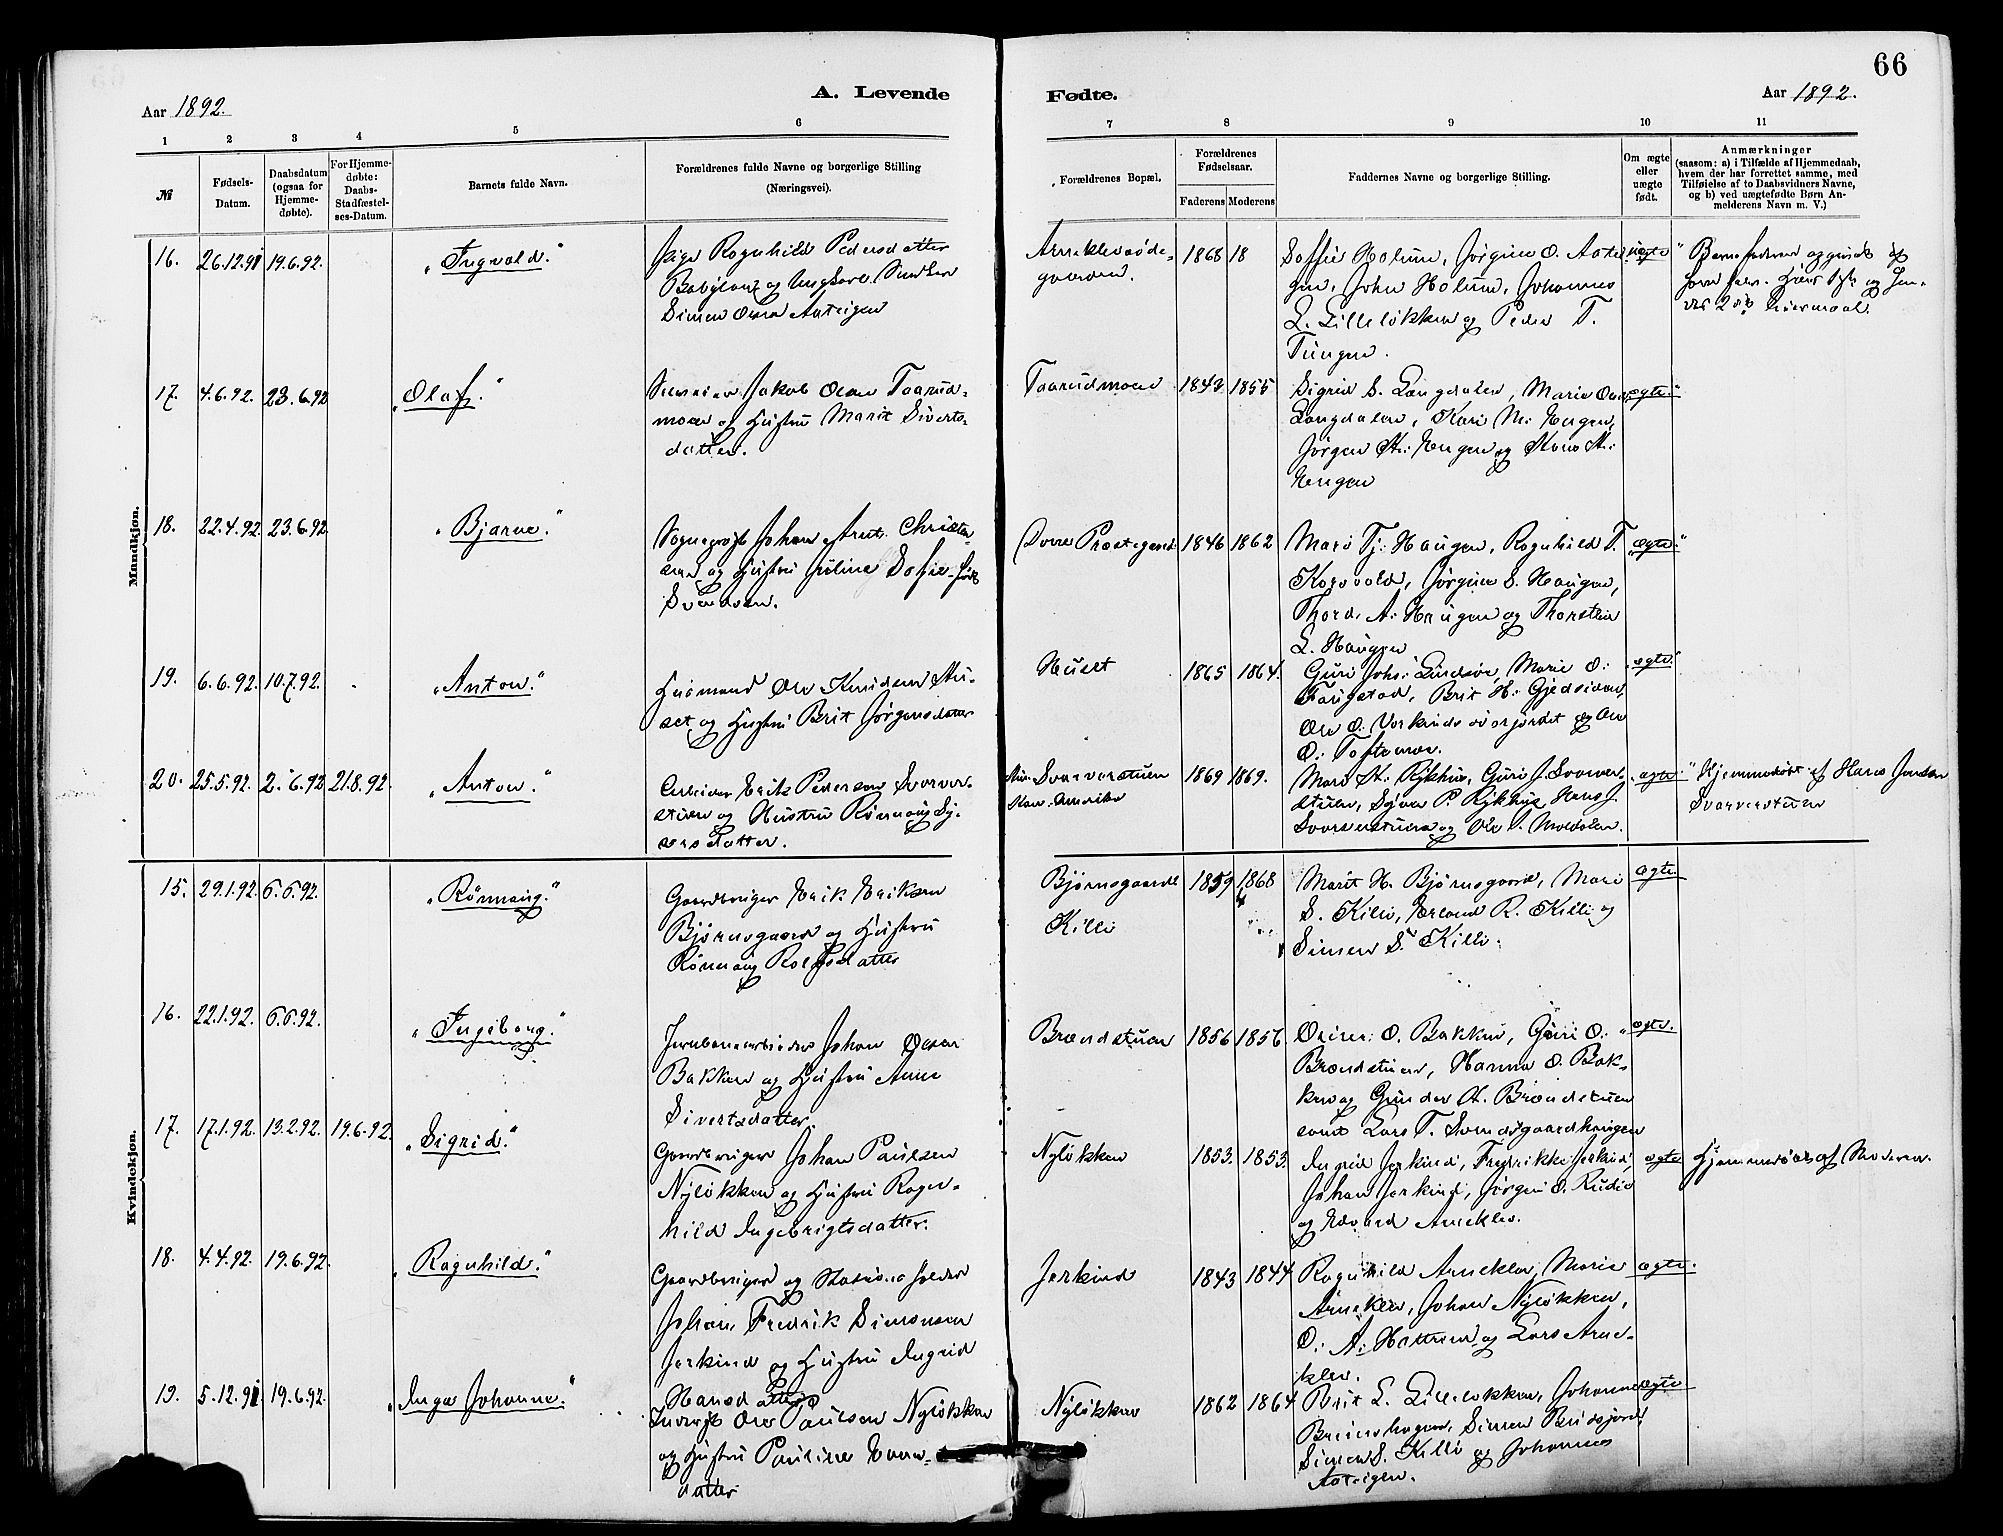 66
Aar 1892.
A. Levende
Fødte.
Aar 1892.
1 2 3 4 5 6
7 8 9 10 11
№
Fødsels-
Datum.
Daabsdatum
(ogsaa for
Hjemme-
døbte).
For Hjemme-
døbte:
Daabs-
Stadfæstel-
ses-Datum.
Barnets fulde Navn.
Forældrenes fulde Navne og borgerlige Stilling
(Næringsvei).
Forældrenes Bopæl.
Forældrenes
Fødselsaar.
Faderens Moderens
Faddernes Navne og borgerlige Stilling.
Om ægte
eller
uægte
født.
Anmærkninger
(saasom: a) i Tilfælde af Hjemmedaab,
hvem der har forrettet samme, med
Tilføielse af to Daabsvidners Navne,
og b) ved uægtefødte Børn An-
melderens Navn m. V.)
Mandkjøn.
16. 26.12.91 19.6.92. "Ingvald."
Pige Ragnhild Pedersdatter
og Ungkarl
Simen Olsen
1868 18
Holum, Jørgine O.
John Holum, Johannes
L. Lilleløkken og Peder T.
Tungen.
uægte
17. 4.6.92. 23.6.92 "Olaf."
Jakob Olsen Taarud-
moen og Hustru Marit Siverts-
datter.
Taarudmoen 1843 1855
Sigrid S. Langdalen, Marie
Langdalen, Kari M. Engen,
Jørgen H. Engen og Hans H.
Engen
"ægte."
18. 22.4.92. 23.6.92. "Bjarne."
Johan Arnt Christen-
sen og Hustru Juline Sofie født
Svendsen.
Dovre Præstegaard 1846 1862
Mari Tj. Haugen, Ragnhild T.
Kongsvold, Jørgine S. Haugen,
Thord A. Haugen og Thorstein
L. Haugen
"ægte."
19. 6.6.92. 10.7.92. "Anton."
Husmand Ole Knudsen Hu-
set og Hustru Brit Jørgensdatter
Huset 1865 1864.
Guri Johs. Lindsøe, Marie O.
Faugstad, Brit H. Gjedsiden,
Ole O. og Ole
O. Toftemoe.
"ægte."
20. 25.5.92. 2.6.92 21.8.92 "Anton."
Arbeider Erik Pedersen Svarver-
stuen og Hustru Rønnaug Sy-
versdatter.
Svarverstuen
Amerika
1869 1869.
Mari H. Rykhus, Guri J. Svarver-
stuen, Syver P. Rykhus, Hans J.
Svarverstuen og Ole J. Moldalen.
"ægte"
Hjemmedøbt af Hans Jensen
Svarverstuen
Kvindekjøn.
15. 29.1.92. 6.6.92. "Rønnaug."
Gaardbruger Erik Eriksen
Bjørnsgaard og Hustru
Rønnaug Rolfsdatter
Bjørnsgaard
Killi
1859 1868
Marit H. Bjørnsgaard, Mari
S. Killi, Erland R. Killi og
Simen S. Killi.
ægte
16. 22.1.92. 6.6.92. "Ingeborg."
Jernbanearbeider Johan Olsen
Bakken og Hustru Anne
Sivertsdatter.
Brændstuen 1856 1856
O. Bakken, Guri O.
Brændstuen, Hanna O. Bak-
ken og Gunder A. Brændstuen
samt Lars T. Svendsgaardhaugen
"ægte.
17. 17.1.92. 13.2.92. 19.6.92. "Sigrid."
Gaardbruger Johan Paulsen
Nyløkken og Hustru Ragn-
hild Ingebrigtsdatter.
Nyløkken 1853. 1853.
Ingrid Jerkind, Fredrikke Jerkind,
Johan Jerkind, Jørgen O. Rudie
og Edvard Arneklev.
ægte
Hjemmedøbt af Moderen.
18. 4.4.92. 19.6.92. "Ragnhild."
Gaardbruger og Stationsholder
Johan Fredrik Simonsen
Jerkind og Hustru Ingrid
Hansdatter
Jerkind 1843 1844
Ragnhild Arneklev, Marie
Arneklev, Johan Nyløkken,
O. A. og Lars Arne-
klev.
ægte.
19. 5.12.91 19.6.92. "Inga Johanne."
Inderst Ole Paulsen Nyløkken
og Hustru Pauline
datter
Nyløkken 1862 1864
Brit L. Lilleløkken, Johanne
Simen
Simen S. Killi og Johannes
ægte